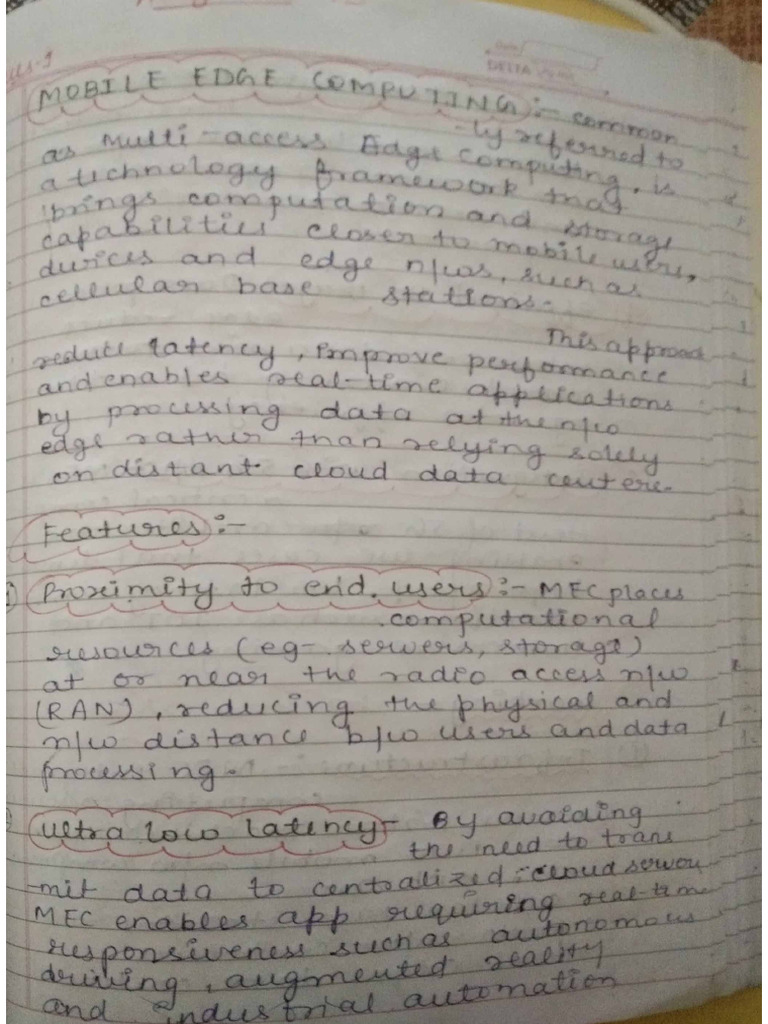 MOBILE EDGE COMPUTING :- common
-ly referred to
as Multi-access Edge Computing, is
a technology framework that
brings computation and storage
capabilities closer to mobile users,
devices and edge n/ws, such as
cellular base stations.
This approach
reduce latency, improve performance
and enables real-time applications
by processing data at the n/w
edge rather than relying solely
on distant cloud data centers.
Features :-
Proximity to end users :- MEC places
computational
resources (eg- servers, storage)
at or near the radio access n/w
(RAN), reducing the physical and
n/w distance b/w users and data
processing.
Ultra low latency - By avoiding
the need to trans
-mit data to centralized cloud server
MEC enables app requiring real-time
responsiveness such as autonomous
driving, augmented reality
and industrial automation